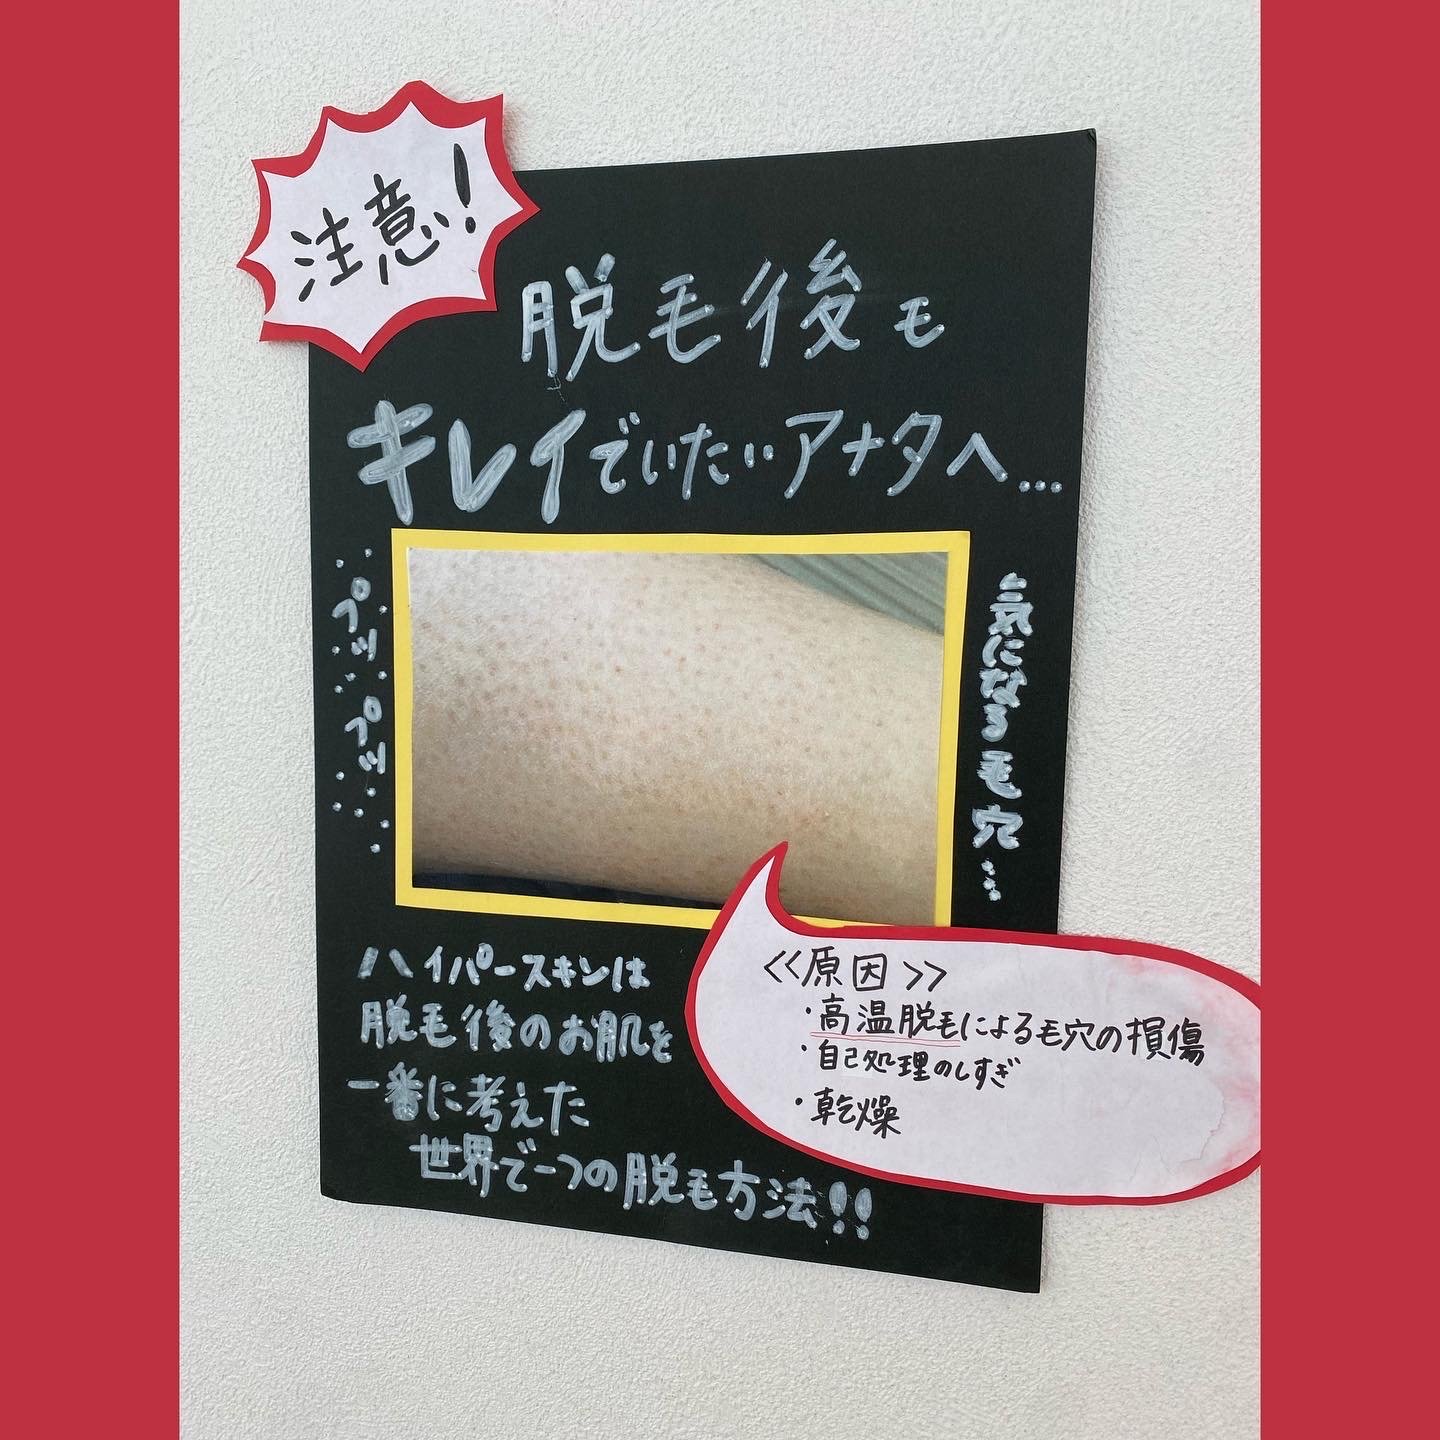 注意!
脱毛後も
キレイでいたいアナタへ…
プツプツ
気になる毛穴…
ハイパースキンは
脱毛後のお肌を
一番に考えた
世界で一つの脱毛方法!!
<<原因>>
・高温脱毛による毛穴の損傷
・自己処理のしすぎ
・乾燥